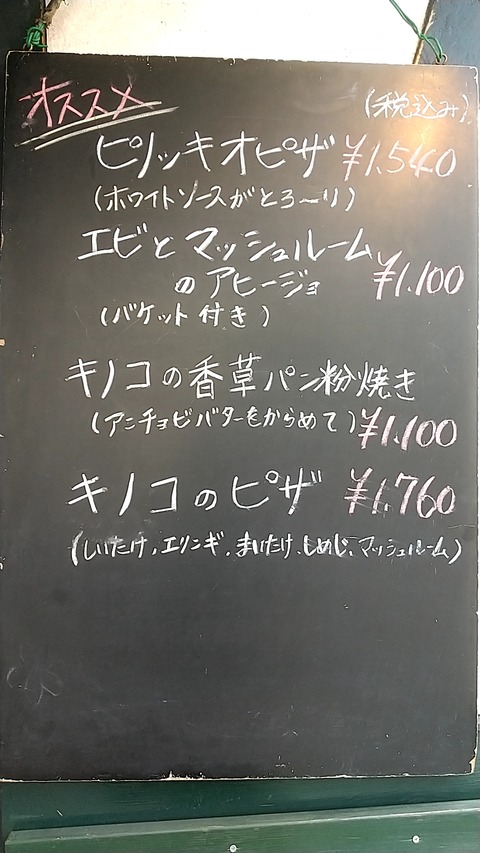 オススメ
(税込み)
ピリッキオピザ ¥1,540
(ホワイトソースがとろ〜り)
エビとマッシュルーム
のアヒージョ ¥1,100
(バケット付き)
キノコの香草パン粉焼き
(アンチョビバターをからめて) ¥1,100
キノコのピザ ¥1,760
(しいたけ、エリンギ、まいたけ、しめじ、マッシュルーム)